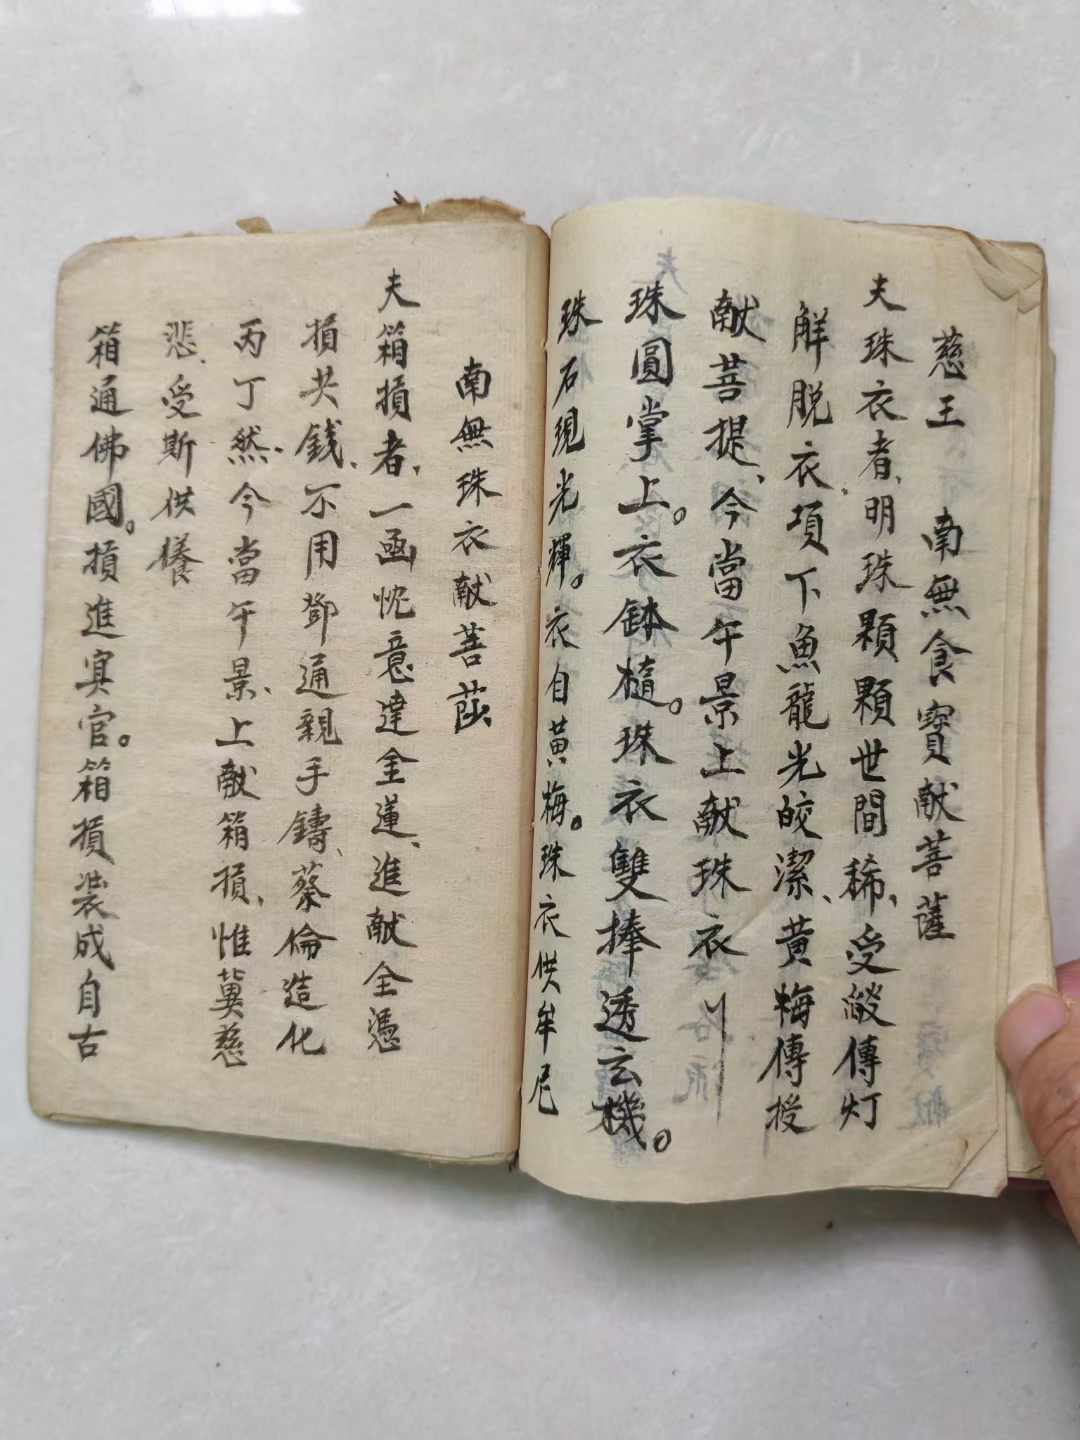 慈王　南無食寶献菩薩
夫珠衣者、明珠顆顆世間稀、受燄傳灯
解脱衣、項下魚龍光皎潔、黃梅傳授
献菩提、今當午景上献珠衣
珠圓掌上。衣鉢隨。珠衣雙捧透玄機。
珠石現光輝。衣自黃梅。珠衣供牟尼
南無珠衣献菩
夫箱損者、一函忱意達金蓮、進献全憑
損共錢、不用鄧通親手鑄、蔡倫造化
丙丁然、今當午景、上献箱損、惟冀慈
悲、受斯供儀
箱通佛國。損進冥官。箱損裝成自古